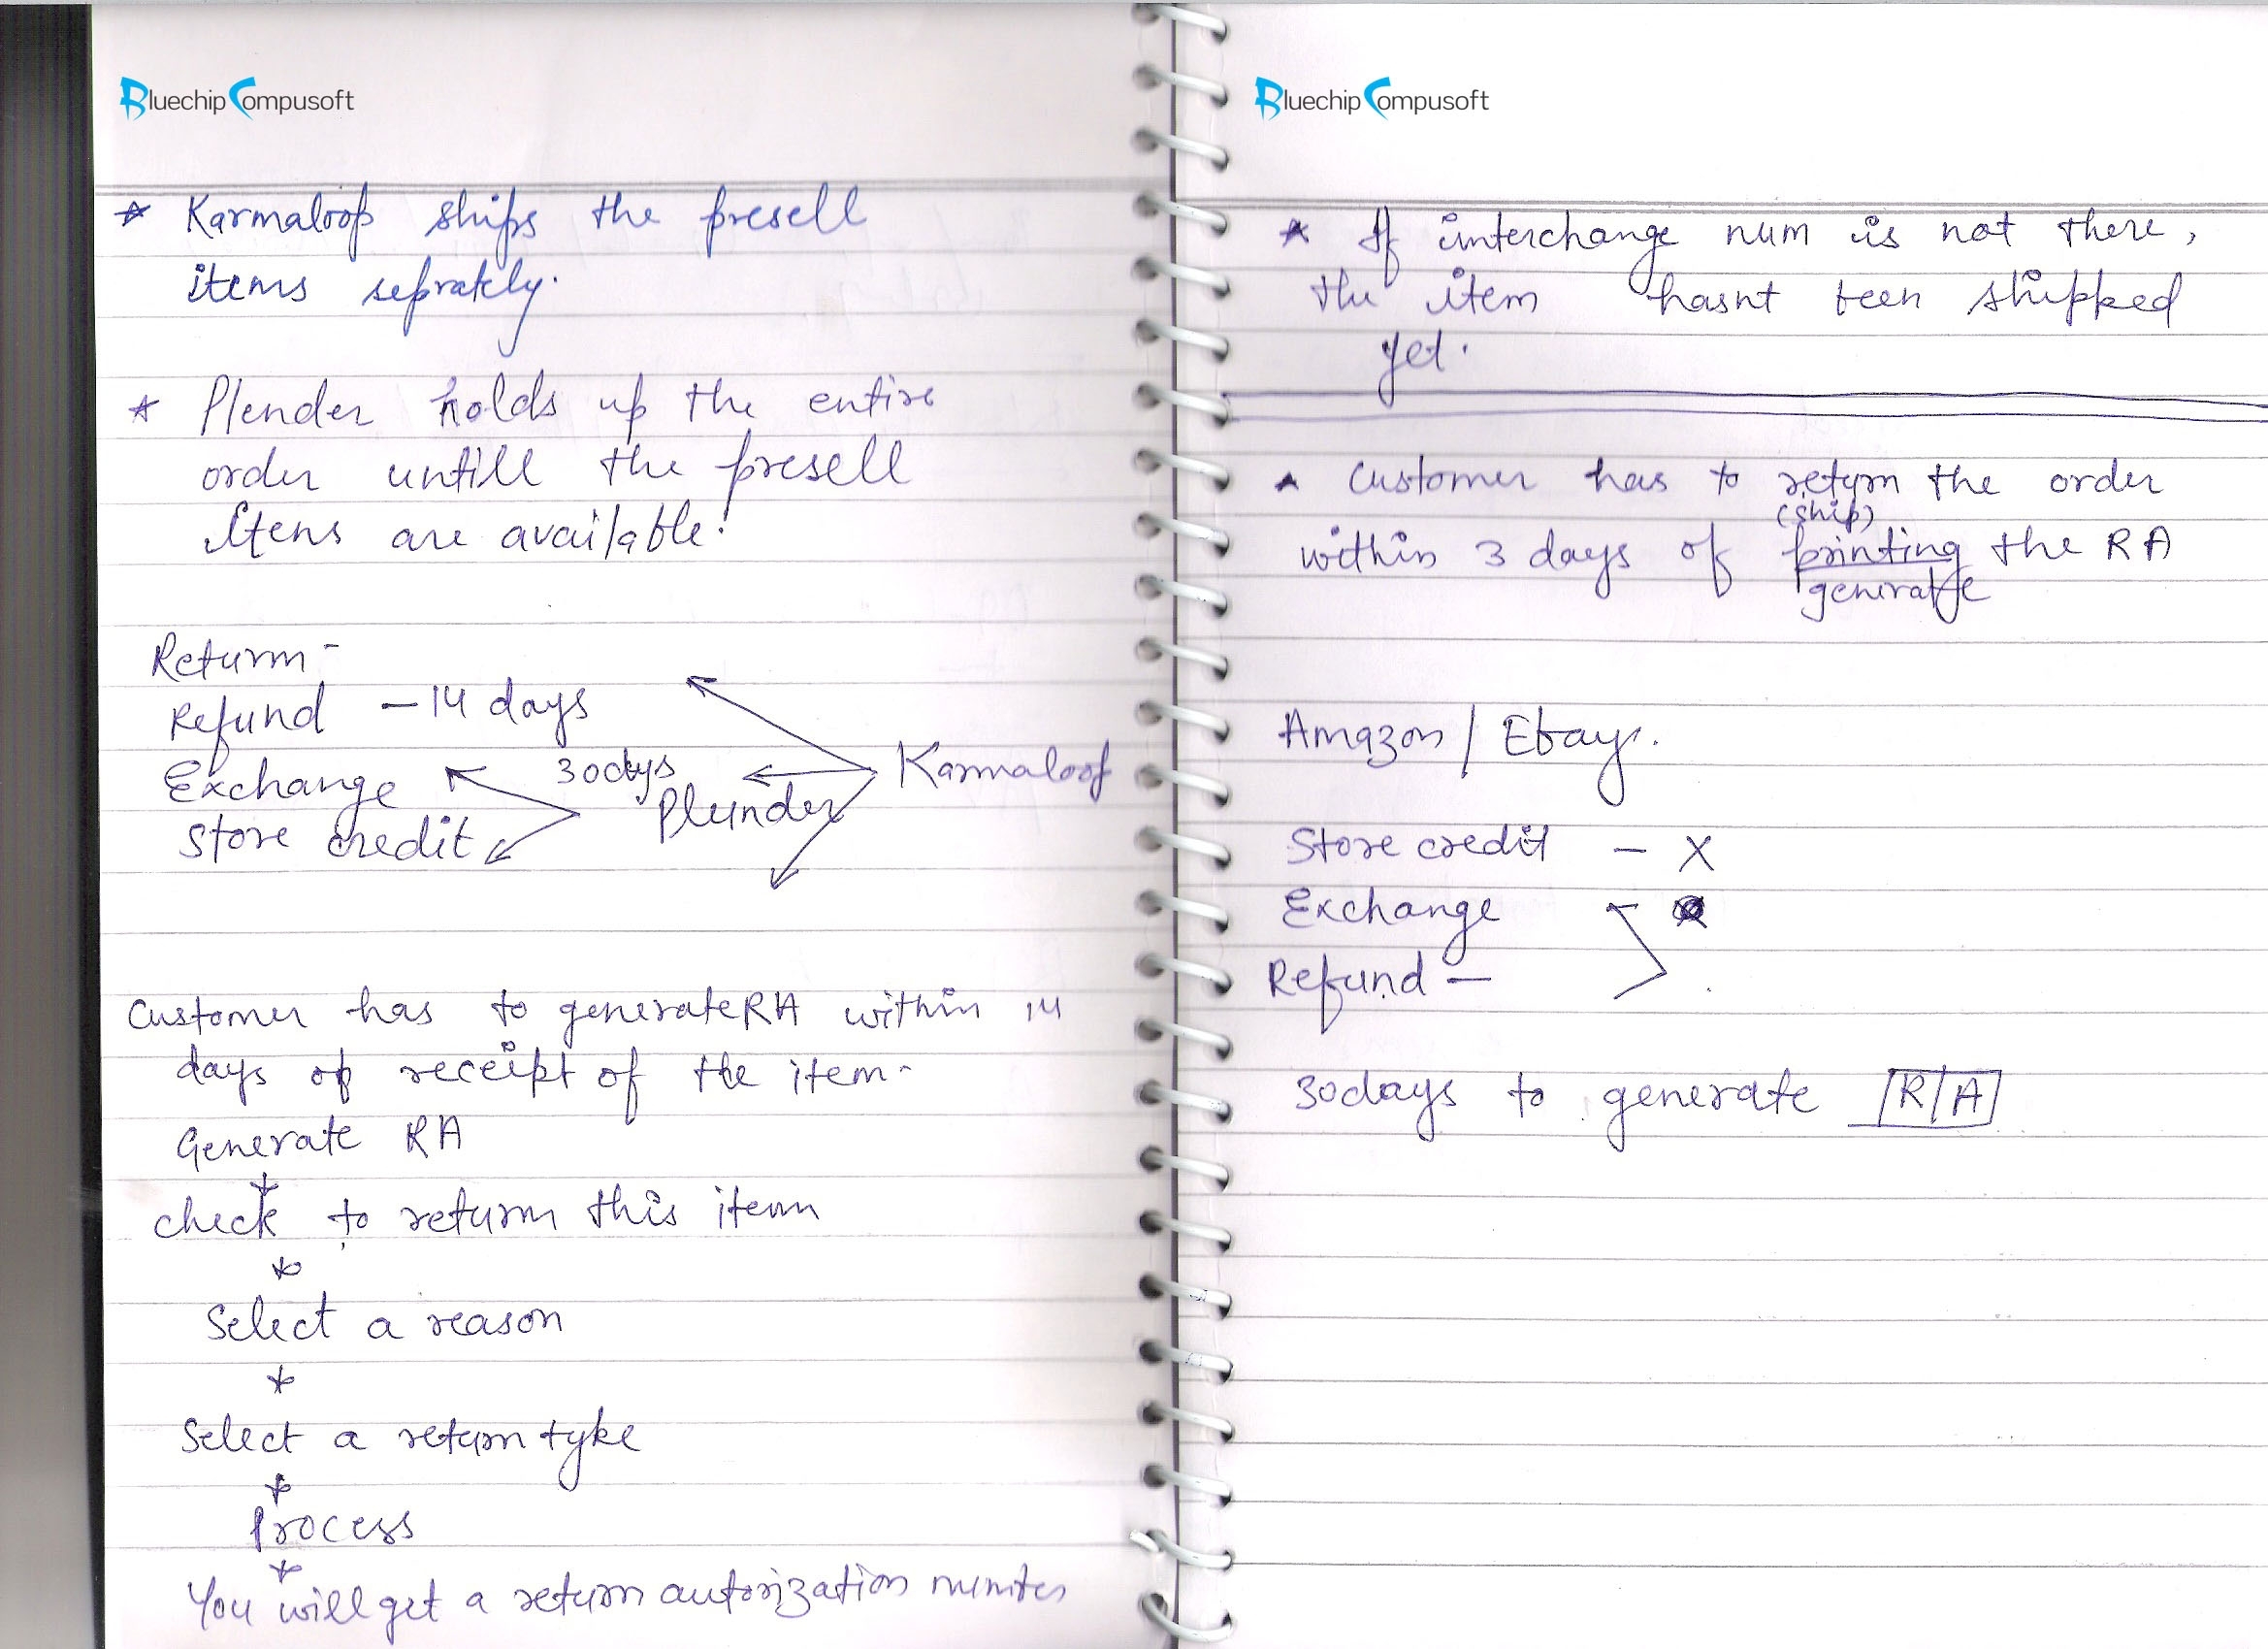 Bluechip Compusoft
* Karmaloop ships the presell
items seprately.
* Plender holds up the entire
order untill the presell
Items are available.
Return -
Refund - 14 days
Exchange 30dys Karmaloop
Plunder
Store credit
Customer has to generate RA within 14
days of receipt of the item.
Generate RA
check to return this item
Select a reason
Select a return type
Process
You will get a return autorization number
Bluechip Compusoft
* If interchange num is not there,
the item hasnt been shipped
yet.
* Customer has to return the order
(ship)
within 3 days of printing the RA
generate
Amazon / Ebay.
Store credit - X
Exchange
Refund -
30days to generate RA